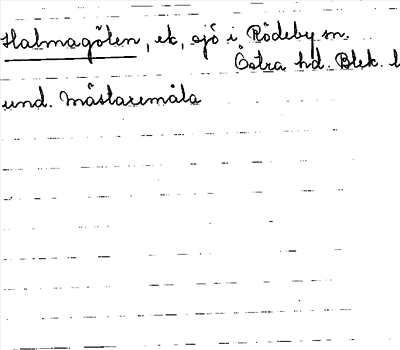 Halmagölen, ek, sjö i Rödeby sn.
Östra hd. Blek. l
und. Mästaremåla